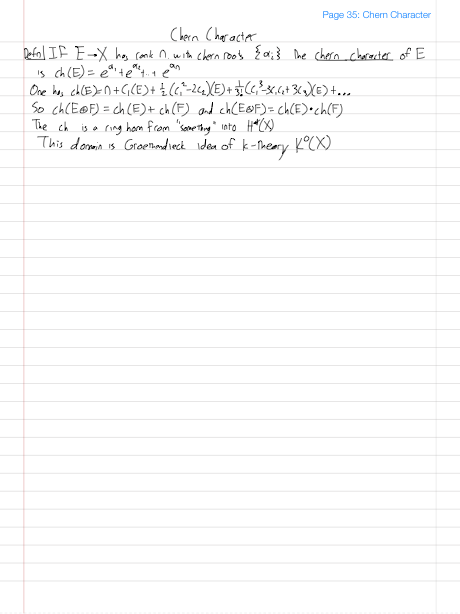 Page 35: Chern Character
Chern Character
Defn| If E→X has rank n with chern roots {αᵢ} the chern character of E
is ch(E) = e^α₁ + e^α₂ + .. + e^αₙ
One has ch(E) = n + C₁(E) + ½(c₁²-2c₂)(E) + 1/3!(c₁³-3c₁c₂+3c₃)(E) + ...
So ch(E⊕F) = ch(E) + ch(F) and ch(E⊗F) = ch(E)·ch(F)
The ch is a ring hom from "something" into H*(X)
This domain is Groethendieck idea of k-theory K⁰(X)